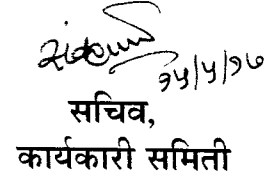 २५/५/१७
सचिव,
कार्यकारी समिती